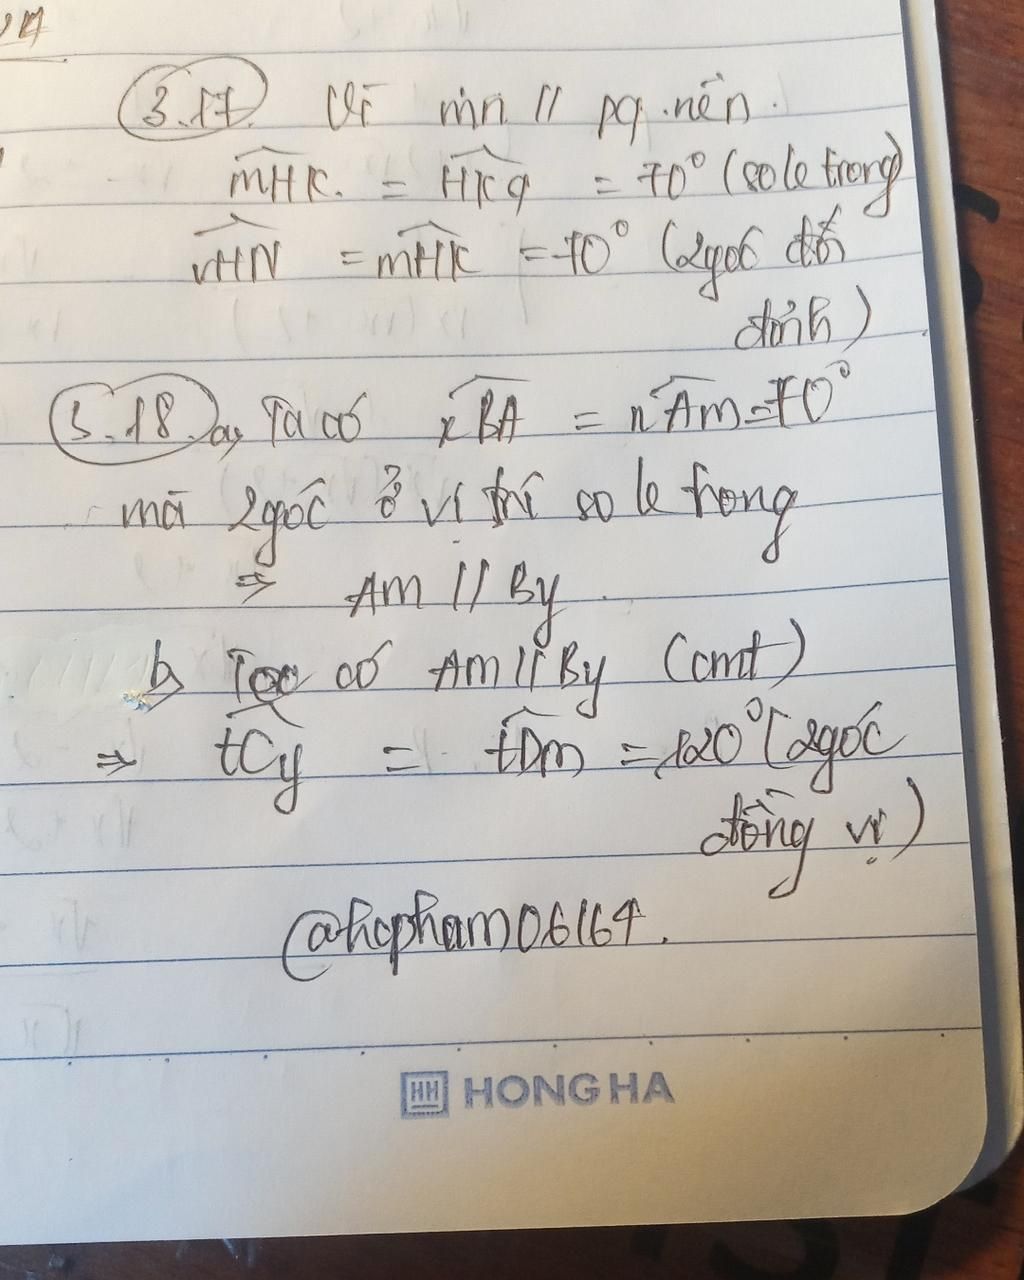 3.17. Vì mn // pq nên.
mHK. = HKq = 70° (so le trong)
vHN = mHK = 70° (2góc đối
đỉnh)
3.18. a, Ta có xBA = nAm = 70°
mà 2góc ở vị trí so le trong
⇒ Am // By.
b, Ta có Am // By (cmt)
⇒ tCy = tDm = 120° (2góc
đồng vị)
@hcpham06164.
HH HONG HA